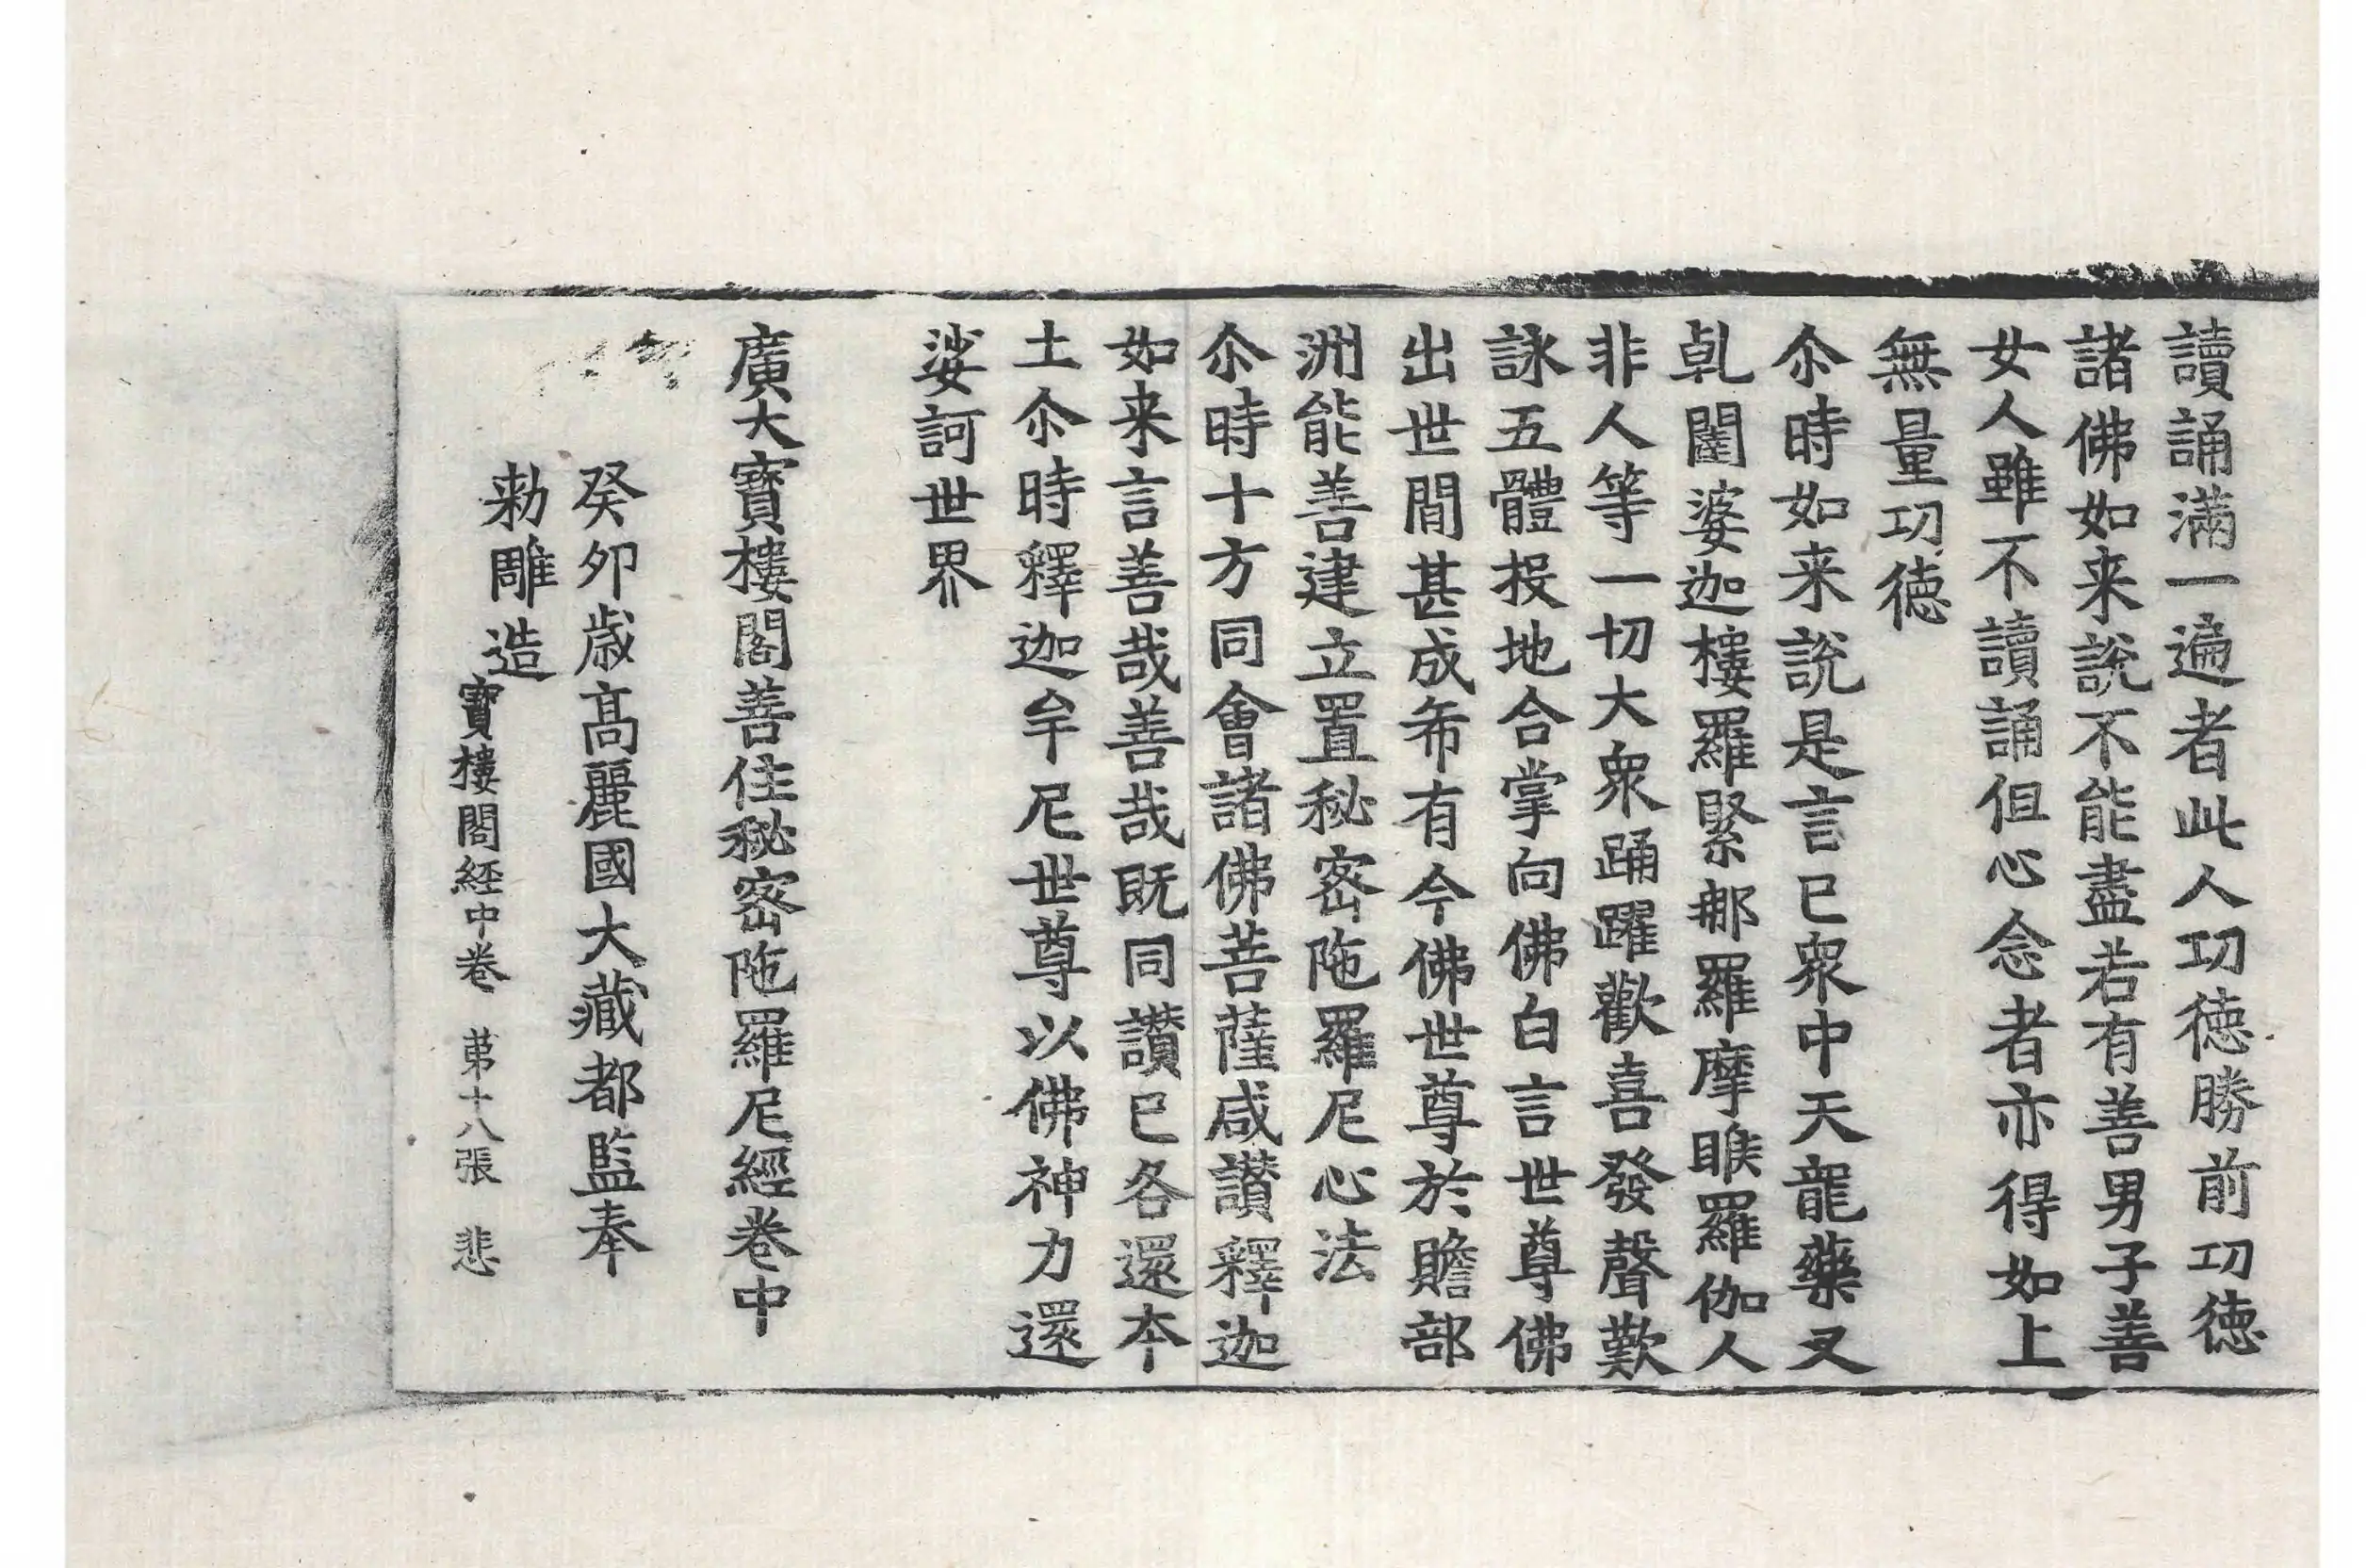 讀誦滿一遍者此人功徳勝前功徳
諸佛如来說不能盡若有善男子善
女人雖不讀誦但心念者亦得如上
無量功徳
尒時如来說是言已衆中天龍藥叉
乹闥婆迦樓羅緊那羅摩睺羅伽人
非人等一切大衆踊躍歡喜發聲歎
詠五體投地合掌向佛白言世尊佛
出世間甚成希有今佛世尊於贍部
洲能善建立置秘密陁羅尼心法
尒時十方同會諸佛菩薩咸讃釋迦
如来言善哉善哉既同讃已各還本
土尒時釋迦牟尼世尊以佛神力還
娑訶世界
廣大寶樓閣善住秘密陁羅尼經卷中
癸夘歳髙麗國大藏都監奉
勅雕造
寶樓閣経中卷 苐十八張 悲